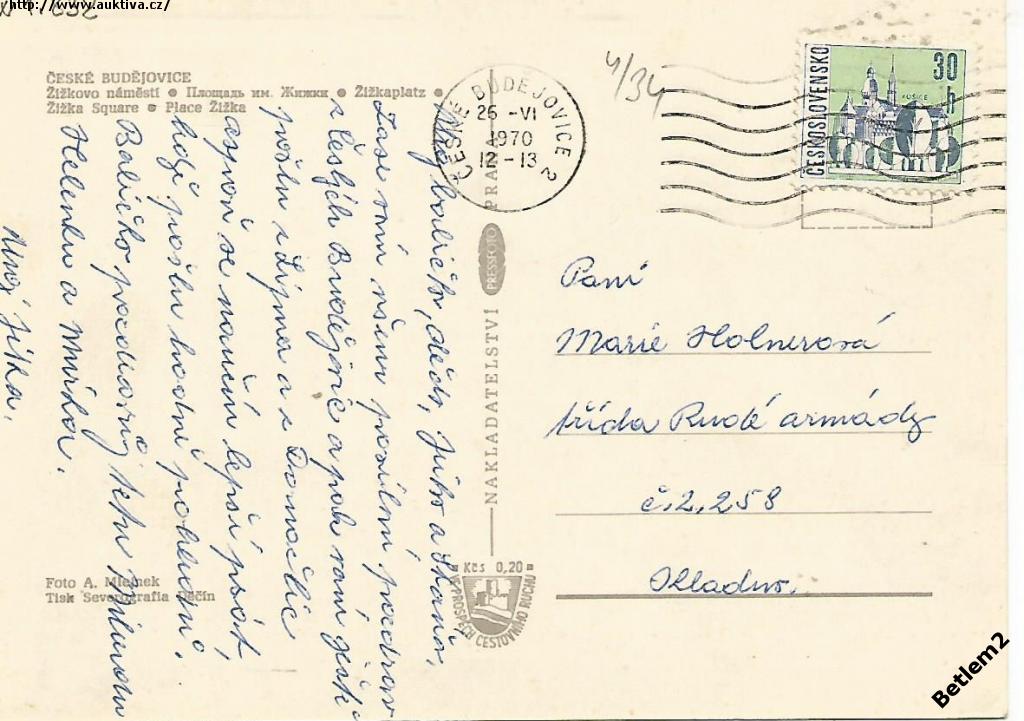 http://www.auktiva.cz/
ČESKÉ BUDĚJOVICE
Žižkovo náměstí • Площадь им. Жижки • Žižkaplatz •
Žižka Square • Place Žižka
4/34
ČESKÉ BUDĚJOVICE 2
26 -VI
1970
12-13
ČESKOSLOVENSKO
30
h
KOŠICE
babičko, dědo, Jirko a
Zase vám všem posílám pozdrav
z Českých Budějovic a pak vám ještě
pošlu z Lipna a z Domažlic
aspoň se naučím lepší psát,
když pošlu hodně pohledů.
Babičko pozdravuj tetu
Helenku a Mirka.
Tvůj Jirka.
NAKLADATELSTVÍ
PRESSFOTO
PRAHA
Kčs 0,20
VE PROSPĚCH CESTOVNÍHO RUCHU
Paní
Marie Holnerová
třída Rudé armády
č. 2.258
Kladno.
Foto A. Mlejnek
Tisk Severografia Děčín
Betlem2